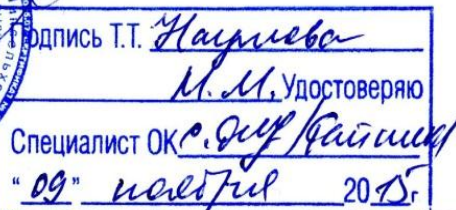 Подпись Т.Т. Наумова
М.М. Удостоверяю
Специалист ОК
"09" ноября 2015г